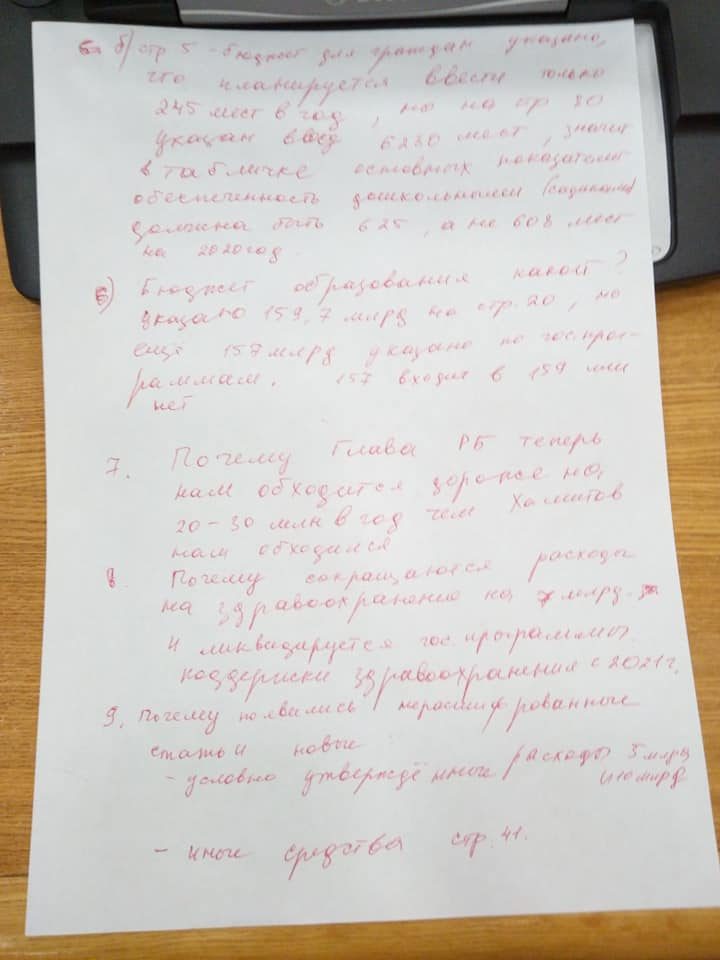 б) стр 5 - бюджет для граждан указано,
что планируется ввести только
245 мест в год, но на стр 80
указан ввод 6230 мест, значит
в табличке основных показателей
обеспеченность дошкольными (садиками)
должна быть 625, а не 608 мест
на 2020 год.
6) Бюджет образования какой?
указано 159,7 млрд на стр. 20, но
ещё 157 млрд указано по госпрог-
раммам. 157 входит в 159 или
нет
7. Почему Глава РБ теперь
нам обходится дороже на
20-30 млн в год чем Хамитов
нам обходился
8. Почему сокращаются расходы
на здравоохранение на 7 млрд.
и ликвидируется гос. программы
поддержки здравоохранения с 2021 г.
9. Почему появились нерасшифрованные
статьи новые
- условно утверждённые расходы 5 млрд
и 10 млрд
- иные средства стр. 41.